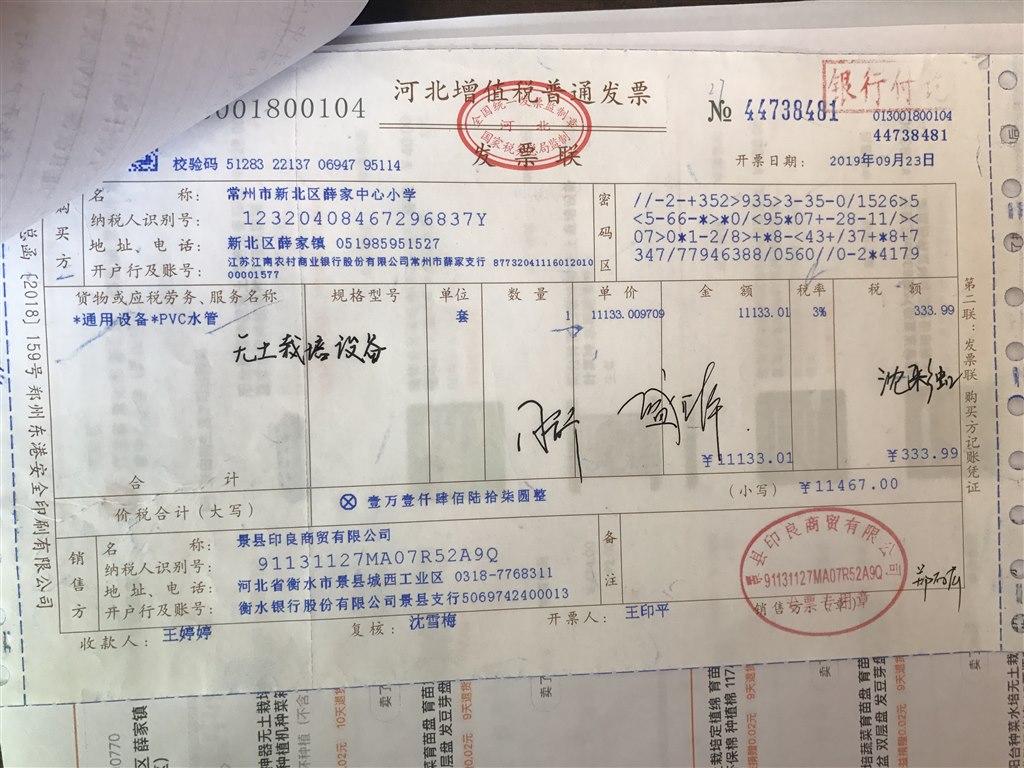 河北增值税普通发票
发票联
全国统一发票监制章
河北
国家税务总局监制
001800104
№ 44738481
银行付讫
013001800104
44738481
校验码 51283 22137 06947 95114
开票日期： 2019年09月23日
购买方
名称： 常州市新北区薛家中心小学
纳税人识别号： 12320408467296837Y
地址、电话： 新北区薛家镇 051985951527
开户行及账号： 江苏江南农村商业银行股份有限公司常州市薛家支行 8773204111601201000001577
密码区
//-2-+352>935>3-35-0/1526>5
<5-66-*>*0/<95*07+-28-11/><
07>0*1-2/8>+*8-<43+/37+*8+7
347/77946388/0560//0-2*4179
货物或应税劳务、服务名称 规格型号 单位 数量 单价 金额 税率 税额
*通用设备*PVC水管 套 1 11133.009709 11133.01 3% 333.99
无土栽培设备
合计 ￥11133.01 ￥333.99
价税合计（大写） ⊗ 壹万壹仟肆佰陆拾柒圆整 （小写） ￥11467.00
销售方
名称： 景县印良商贸有限公司
纳税人识别号： 91131127MA07R52A9Q
地址、电话： 河北省衡水市景县城西工业区 0318-7768311
开户行及账号： 衡水银行股份有限公司景县支行5069742400013
备注
景县印良商贸有限公司
91131127MA07R52A9Q
发票专用章
收款人： 王婷婷 复核： 沈雪梅 开票人： 王印平 销售方：（章）
第二联：发票联 购买方记账凭证
总函〔2018〕159号 郑州东港安全印刷有限公司